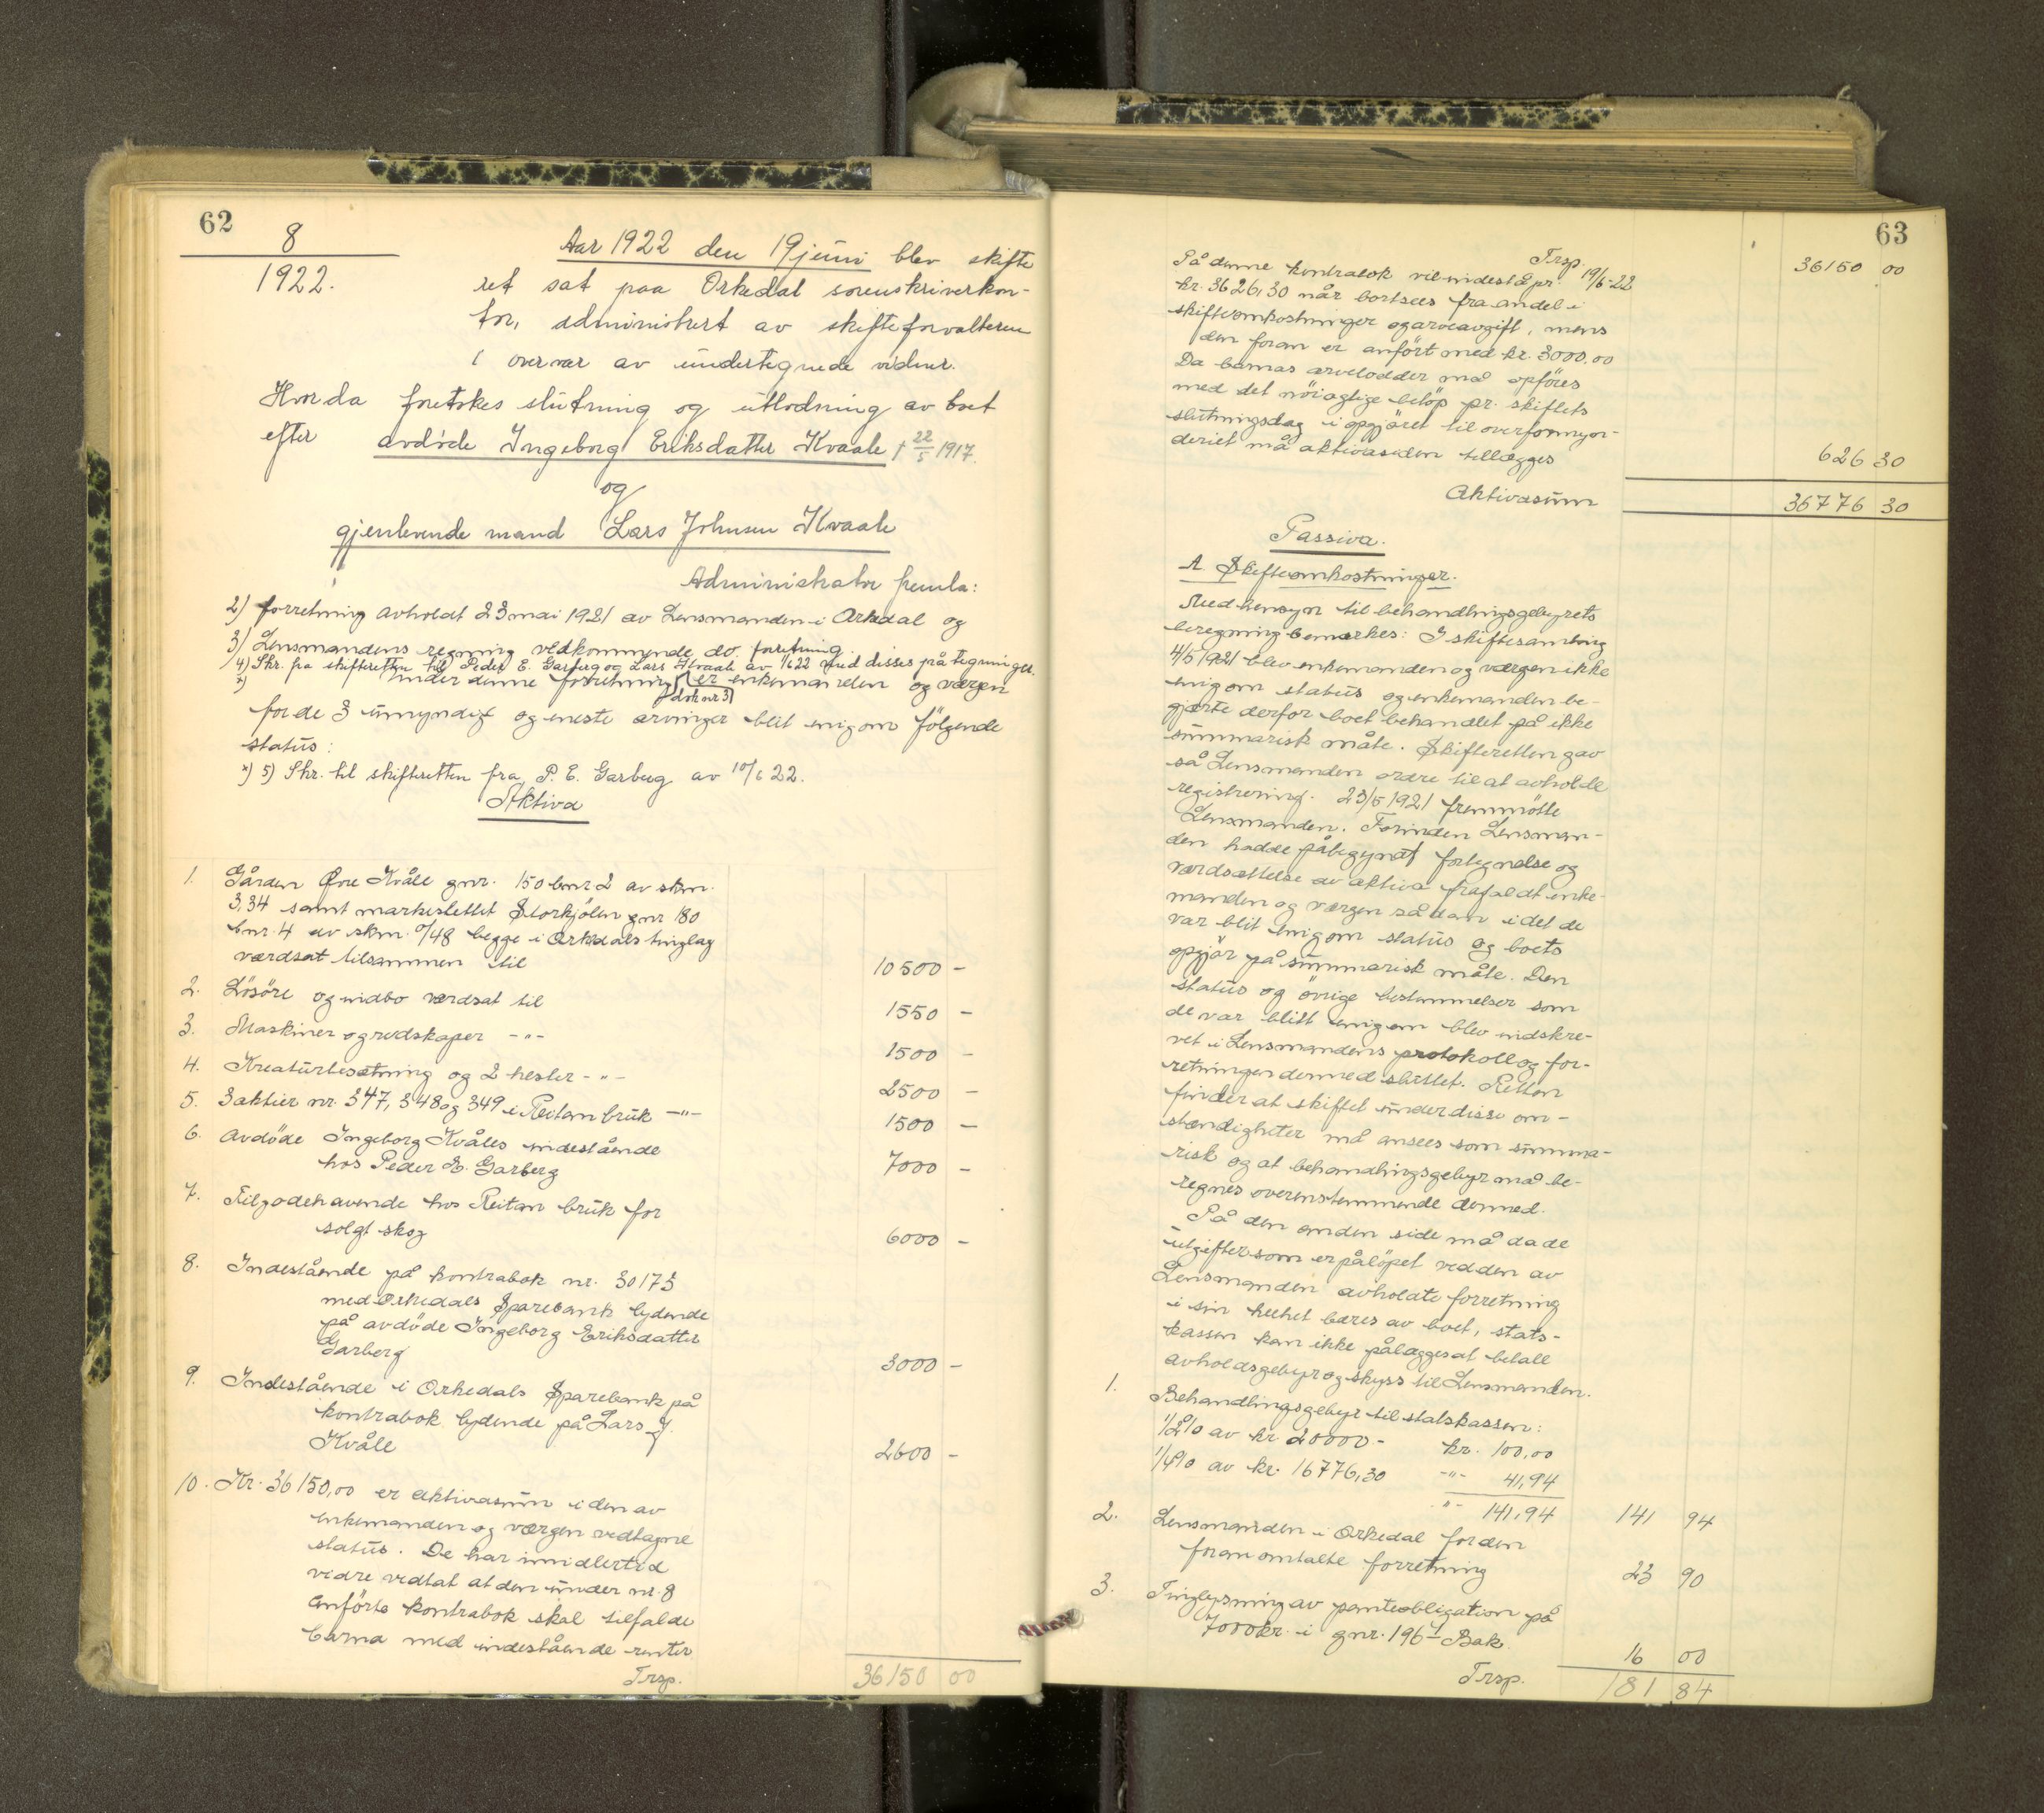 62
8
1922.
Aar 1922 den 19 juni blev skifte
ret sat paa Orkedal sorenskriverkon-
tor, administrert av skifteforvalteren
i overvær av undertegnede vidner.
Hvorda foretokes slutning og utlodning av boet
efter avdøde Ingeborg Eriksdatter Kvaale † 22/5 1917.
og
gjenlevende mand Lars Johnsen Kvaale
Administrator fremla:
2) forretning avholdt 23 mai 1921 av Lensmanden i Orkedal og
3) Lensmandens regning vedkommende do. forretning.
4) Skr. fra skifteretten til Peder E. Garberg og Lars Kvaale av 1/6 22 med disses påtegninger.
x) Under denne forretning er enkemanden og værgen
dok nr 3
for de 3 umyndige og eneste arvinger blit enig om følgende
status:
x) 5) Skr. til skifteretten fra P. E. Garberg av 10/6 22.
Aktiva
1. Gården Øvre Kvåle gnr. 150 bnr 2 av skm.
3,34 samt markeslettet Storkjölen gnr 180
bnr. 4 av skm. 0/48 begge i Orkedals tinglag
værdsat tilsammen til 10500 -
2. Lösöre og indbo værdsat til 1550 -
3. Maskiner og redskaper -"- 1500 -
4. Kreaturbesætning og 2 hester -"- 2500 -
5. 3 aktier nr. 347, 348 og 349 i Reitan bruk -"- 1500 -
6. Avdöde Ingeborg Kvåles indestående
hos Peder E. Garberg 7000 -
7. Tilgodehavende hos Reitan bruk for
solgt skog 6000 -
8. Indestående på kontrabok nr. 30175
med Orkedals Sparebank lydende
på avdöde Ingeborg Eriksdatter
Garberg 3000 -
9. Indestående i Orkedals Sparebank på
kontrabok lydende på Lars J.
Kvåle 2600 -
10. Kr. 36150,00 er aktivasum i den av
enkemanden og værgen vedtagne
status. De har imidlertid
vidre vedtat at den under nr. 8
anförte kontrabok skal tilfalde
barna med indestående renter
Trsp. 36150 00
63
Trsp. 36150 00
På denne kontrabok vil indestå pr. 19/6-22
kr. 3626,30 når bortsees fra andel i
skifteomkostninger og arveavgift, mens
den foran er anfört med kr. 3000.00
Da barnas arvelodder må opföres
med det nöiagtige belöp pr. skiftets
slutningsdag i opgjöret til overformyn-
deriet må aktivasiden tillægges 626 30
Aktivasum 36776 30
Passiva.
A. Skifteomkostninger.
Med hensyn til behandlingsgebyrets
beregning bemerkes: I skiftesamling
4/5 1921 blev enkemanden og værgen ikke
enig om status og enkemanden be-
gjærte derfor boet behandlet på ikke
summarisk måte. Skifteretten gav
så Lensmanden ordre til at avholde
registrering. 23/5 1921 fremmötte
Lensmanden. Forinden Lensman-
den hadde påbegyndt fortegnelse og
værdsættelse av aktiva frafaldt enke-
manden og værgen sådan idet de
var blit enig om status og boets
opgjör på summarisk måte. Den
status og övrige bestemmelser som
de var blitt enig om blev indskre-
vet i Lensmandens protokoll og for-
retningen dermed sluttet. Retten
finder at skiftet under disse om-
stændigheter må ansees som summa-
risk og at behandlingsgebyr må be-
regnes overenstemmende dermed.
På den anden side må da de
utgifter som er pålöpet ved den av
Lensmanden avholdte forretning
i sin helhet bæres av boet, stats-
kassen kan ikke pålægges at betale
avholdsgebyr og skyss til Lensmanden.
1. Behandlingsgebyr til statskassen:
1/2% av kr 20000 - kr. 100,00
1/4% av kr. 16776,30 -"- 41,94
-"- 141,94 141 94
2. Lensmanden i Orkedal for den
foran omtalte forretning 23 90
3. Tinglysning av panteobligation på
7000 kr. i gnr. 196/1 Bak 16 00
Trsp. 181 84